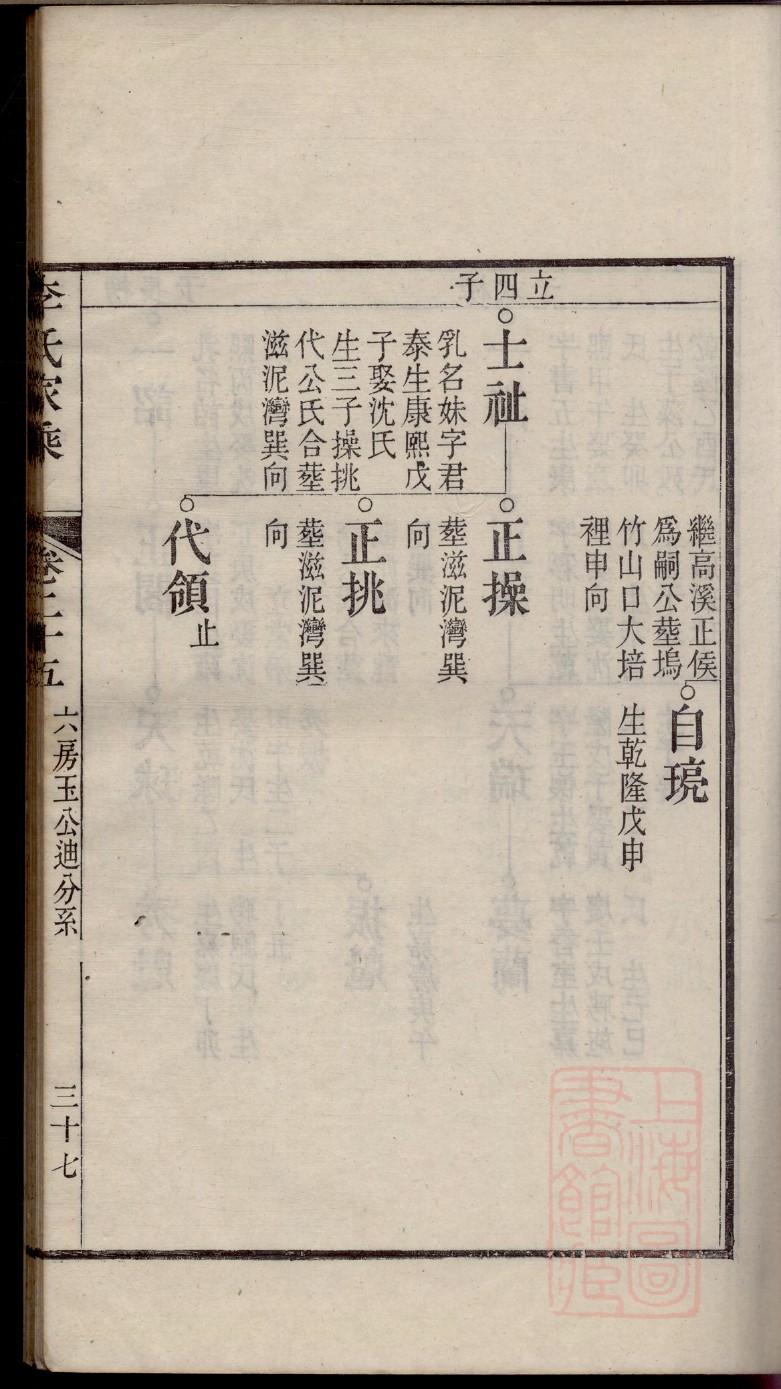 立四子
繼高溪正侯
爲嗣公塟塢
竹山口大培
裡申向
自琓
生乾隆戊申
士祉
乳名妹字君
泰生康熙戊
子娶沈氏
生三子操挑
代公氏合塟
滋泥灣巽向
正操
塟滋泥灣巽
向
正挑
塟滋泥灣巽
向
代領止
李氏家乘
卷二十五
六房玉公迪分系
三十七
上海圖
書館藏